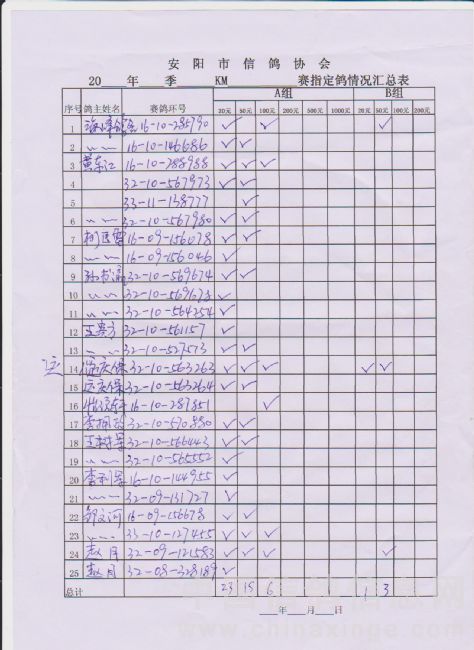 安阳市信鸽协会
20 年 季 KM 赛指定鸽情况汇总表
序号 鸽主姓名 赛鸽环号 A组 B组
20元 50元 100元 200元 500元 1000元 20元 50元 100元 200元
1 16-10-285790 ✓ ✓ ✓
2 〃 16-10-146686 ✓ ✓
3 黄东江 16-10-288988 ✓ ✓ ✓
4 32-10-567973 ✓ ✓
5 33-11-138777 ✓
6 〃 32-10-567980 ✓ ✓
7 16-09-156078 ✓ ✓
8 〃 16-09-156046 ✓
9 32-10-569674 ✓ ✓
10 〃 32-10-569698 ✓
11 〃 32-10-564254 ✓
12 32-10-561157 ✓
13 〃 32-10-527573 ✓
14 庆保 32-10-563263 ✓ ✓ ✓ ✓ ✓
15 庆保 32-10-563264 ✓ ✓
16 16-10-287851 ✓
17 32-10-570880 ✓ ✓
18 32-10-566443 ✓ ✓
19 〃 32-10-565552 ✓
20 16-10-144955 ✓
21 〃 32-09-131727 ✓
22 邹文河 16-09-156678 ✓ ✓
23 〃 33-10-127475 ✓ ✓ ✓
24 赵月 32-09-121583 ✓ ✓ ✓ ✓
25 赵月 32-08-328189 ✓
总计 23 15 6 1 3
年 月 日
中国信鸽信息网
www.chinaxinge.com